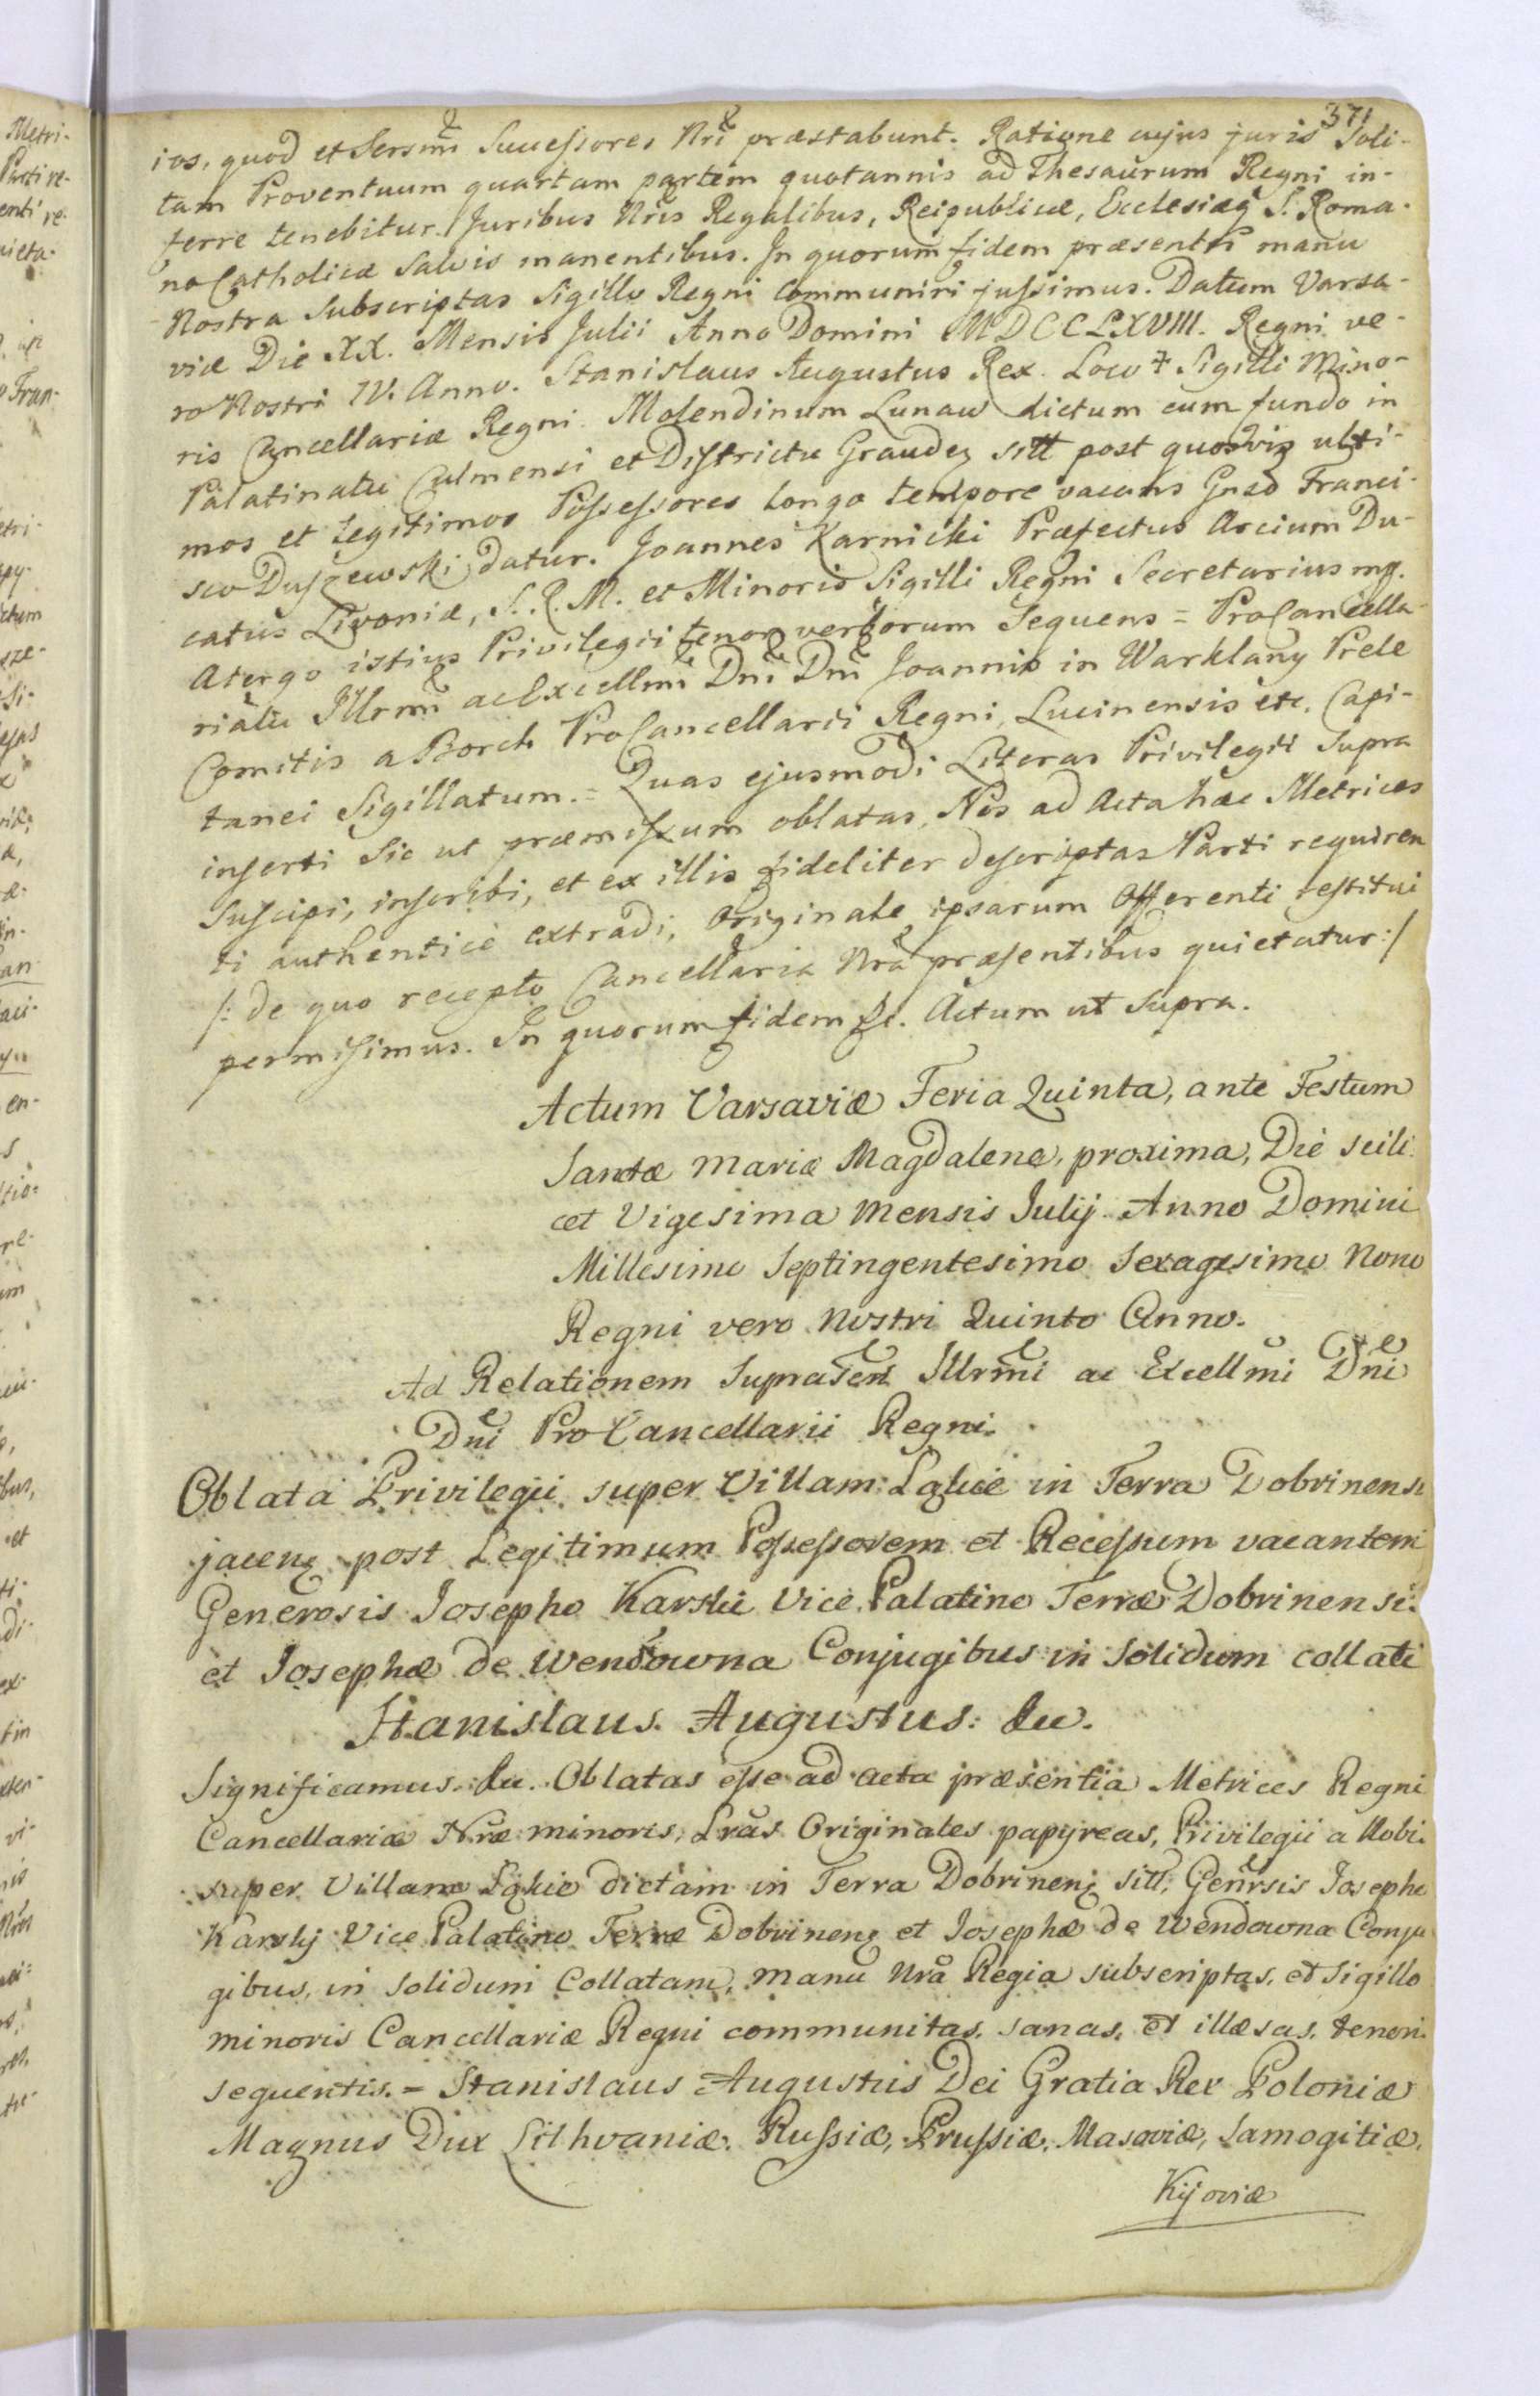 371
ios, quod et Sersmi Successores Nri præstabunt. Ratione cujus juris Soli-
tam Proventuum quartam partem quotannis ad Thesaurum Regni in-
ferre tenebitur. Juribus Nris Regalibus, Reipublicæ, Ecclesiæq S. Roma-
no Catholicæ salvis manentibus. In quorum fidem præsentes manu
Nostra Subscriptas Sigillo Regni Communiri jussimus. Datum Varsa-
viæ Die XX. Mensis Julii Anno Domini MDCCLXVIII. Regni ve-
ro Nostri IV. Anno. Stanislaus Augustus Rex. Loco Sigilli Mino-
ris Cancellariæ Regni. Molendinum Lunau dictum cum fundo in
Palatinatu Culmensi et Districtu Graudez sitt post quosvis ulti-
mos et Legitimos Possessores longo tempore vacans Gnso Franci-
sco Duszewski datur. Joannes Karnicki Præfectus Arcium Du-
catus Livoniæ, S. R. M. et Minoris Sigilli Regni Secretarius mp.
Atergo istius Privilegii tenor verborum Sequens = ProCancella-
riatu Illrmi ac Excellmi Dni Dni Joannis in Warklany Prele
Comitis a Borch ProCancellarii Regni, Lucinensis etc. Capi-
tanei Sigillatum. = Quas ejusmodi Literas Privilegii Supra
inserti sic ut præmissum oblatas, Nos ad Acta hæc Metrices
Suscipi, inscribi, et ex illis fideliter descriptas Parti requiren
ti authentice extradi, Originale ipsarum Offerenti restitui
/: de quo recepto Cancellaria Nra præsentibus quietatur :/
permisimus. In quorum fidem &c. Actum ut Supra.
Actum Varsaviæ Feria Quinta, ante Festum
Sanctæ Mariæ Magdalenæ, proxima, Die scili
cet Vigesima Mensis Julij Anno Domini
Millesimo Septingentesimo Sexagesimo Nono
Regni vero Nostri Quinto Anno.
Ad Relationem Suprascri Illrmi ac Excellmi Dni
Dni ProCancellarii Regni.
Oblata Privilegii super Villam Ląkie in Terra Dobrinensi
jacen: post Legitimum Possessorem et Recessum vacantem
Generosis Josepho Karski Vice Palatino Terræ Dobrinensi:
et Josephæ de Wendowna Conjugibus in Solidum collati
Stanislaus. Augustus: &c.
Significamus. &c. Oblatas esse ad acta præsentia Metrices Regni
Cancellariæ Nræ minoris, Lras Originales papyreas, Privilegii a Nobi:
super Villam Łąkie dictam in Terra Dobrinen: sitt, Genrsis Josepho
Karskj Vice Palatino Terræ Dobrinen: et Josephæ de Wendowna Conju
gibus, in Solidum Collatam, manu Nra Regia subscriptas, et sigillo
minoris Cancellariæ Regni communitas, sanas, et illæsas, tenori:
sequentis. = Stanislaus Augustus Dei Gratia Rex Poloniæ
Magnus Dux Lithvaniæ, Russiæ, Prussiæ, Masoviæ, Samogitiæ,
Kijoviæ